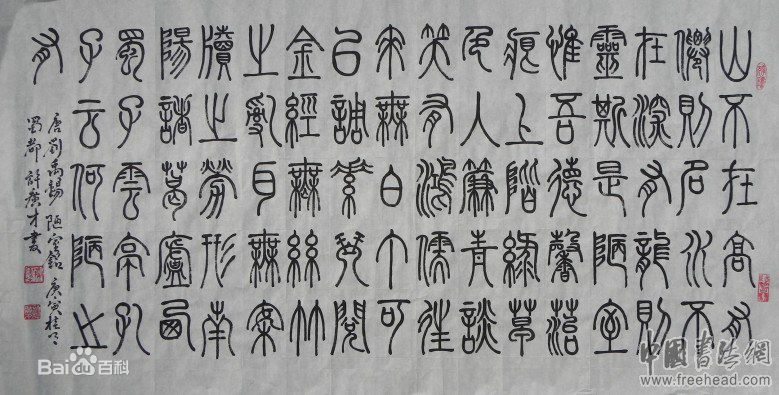 山不在高有
僊則名水不
在深有龍則
靈斯是陋室
惟吾德馨苔
痕上階綠草
色入簾青談
笑有鴻儒往
來無白丁可
以調素琴閱
金經無絲竹
之亂耳無案
牘之勞形南
陽諸葛廬西
蜀子雲亭孔
子云何陋之
有
唐劉禹錫陋室銘庚寅桂月
蜀都許廣才書
Bai百科
中國書法網
www.freehead.com